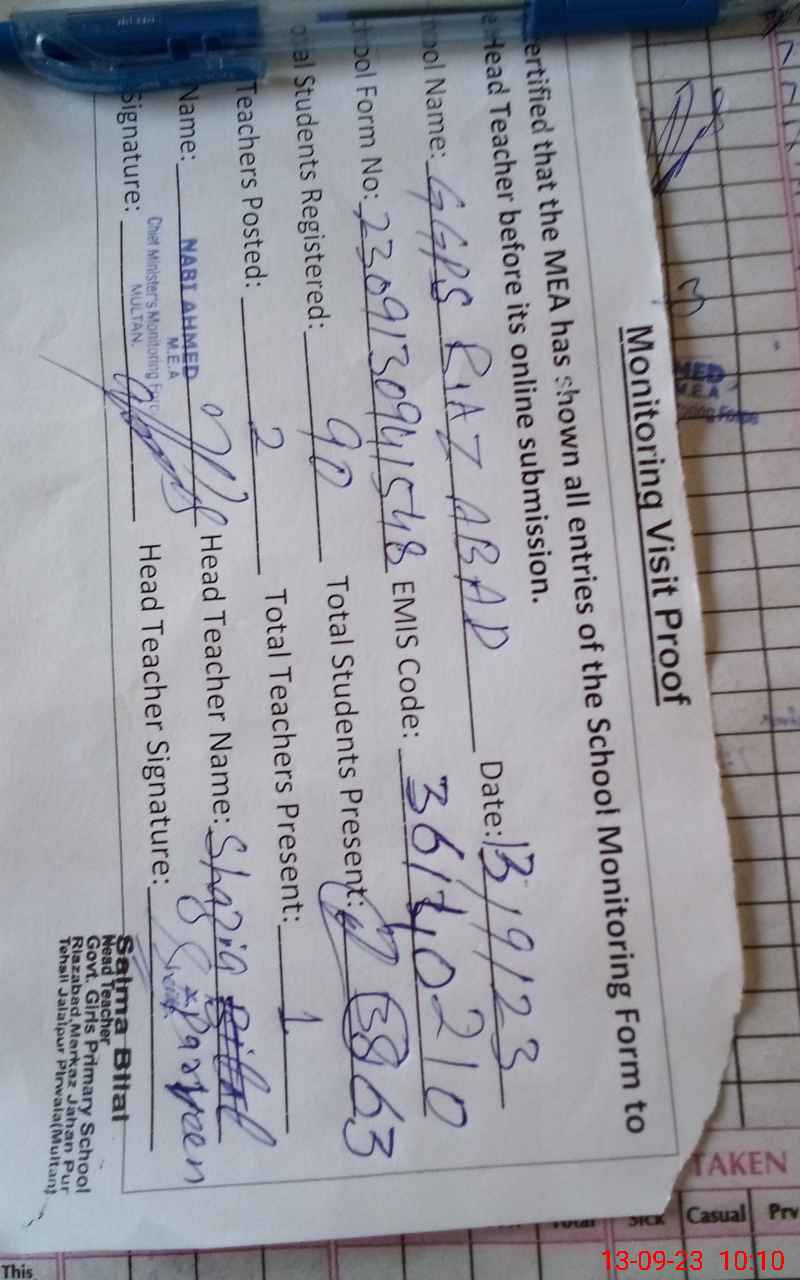 Monitoring Visit Proof
ertified that the MEA has shown all entries of the School Monitoring Form to
Head Teacher before its online submission.
ool Name: GGPS RIAZ ABAD Date: 13/9/23
ool Form No: 2309130941548 EMIS Code: 36140210
al Students Registered: 90 Total Students Present: 63
Teachers Posted: 2 Total Teachers Present: 1
Name: NABI AHMED Head Teacher Name: Shazia Parveen
M.E.A
Chief Minister's Monitoring Force
MULTAN.
Signature: Head Teacher Signature:
Salma Bilal
Head Teacher
Govt. Girls Primary School
Riazabad, Markaz Jahan Pur
Tehsil Jalalpur Pirwala (Multan)
TAKEN
Sick Casual Prv
This
13-09-23 10:10